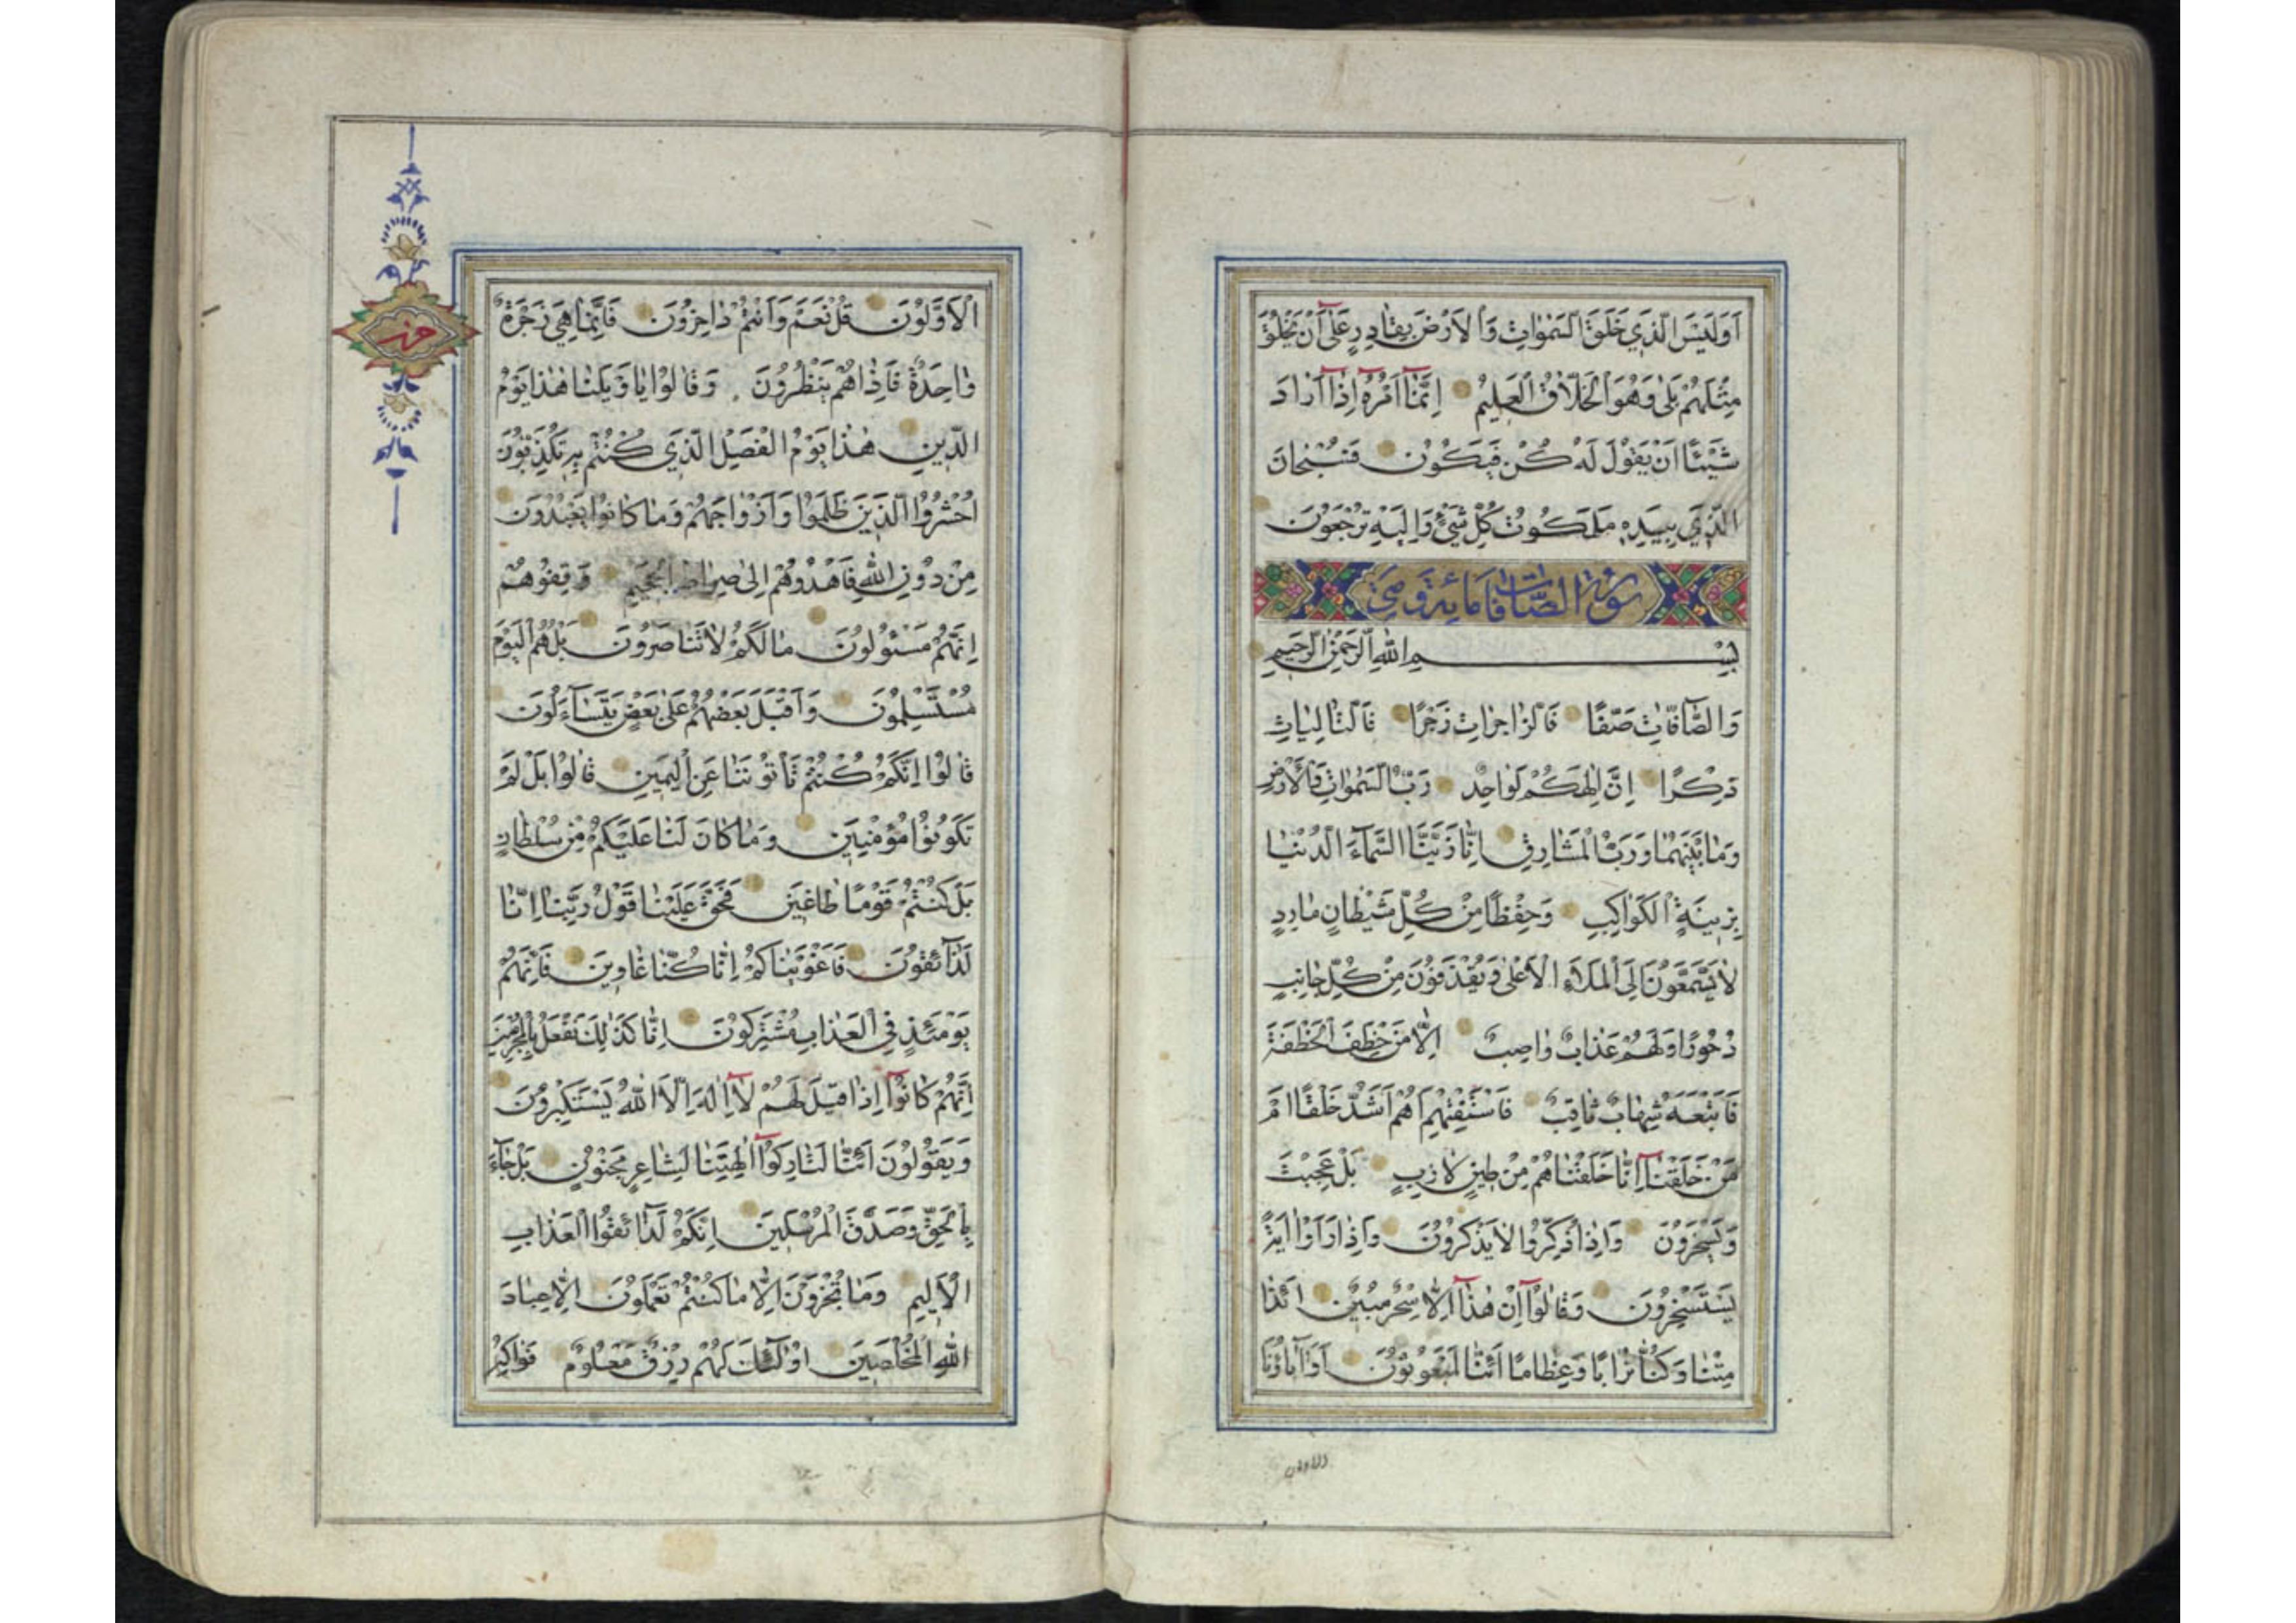 اَوَلَيْسَ الَّذِي خَلَقَ السَّمٰوَاتِ وَالْاَرْضَ بِقَادِرٍ عَلٰٓى اَنْ يَخْلُقَ
مِثْلَهُمْ بَلٰى وَهُوَ الْخَلَّاقُ الْعَلِيمُ اِنَّمَآ اَمْرُهُٓ اِذَآ اَرَادَ
شَيْئًا اَنْ يَقُولَ لَهُ كُنْ فَيَكُونُ فَسُبْحَانَ
الَّذِي بِيَدِهِ مَلَكُوتُ كُلِّ شَيْءٍ وَاِلَيْهِ تُرْجَعُونَ
سورة الصّافّات مائة و
بِسْمِ اللّٰهِ الرَّحْمٰنِ الرَّحِيمِ
وَالصَّآفَّاتِ صَفًّا فَالزَّاجِرَاتِ زَجْرًا فَالتَّالِيَاتِ
ذِكْرًا اِنَّ اِلٰهَكُمْ لَوَاحِدٌ رَبُّ السَّمٰوَاتِ وَالْاَرْضِ
وَمَا بَيْنَهُمَا وَرَبُّ الْمَشَارِقِ اِنَّا زَيَّنَّا السَّمَآءَ الدُّنْيَا
بِزِينَةٍ الْكَوَاكِبِ وَحِفْظًا مِنْ كُلِّ شَيْطَانٍ مَارِدٍ
لَا يَسَّمَّعُونَ اِلَى الْمَلَاِ الْاَعْلٰى وَيُقْذَفُونَ مِنْ كُلِّ جَانِبٍ
دُحُورًا وَلَهُمْ عَذَابٌ وَاصِبٌ اِلَّا مَنْ خَطِفَ الْخَطْفَةَ
فَاَتْبَعَهُ شِهَابٌ ثَاقِبٌ فَاسْتَفْتِهِمْ اَهُمْ اَشَدُّ خَلْقًا اَمْ
مَنْ خَلَقْنَآ اِنَّا خَلَقْنَاهُمْ مِنْ طِينٍ لَازِبٍ بَلْ عَجِبْتَ
وَيَسْخَرُونَ وَاِذَا ذُكِّرُوا لَا يَذْكُرُونَ وَاِذَا رَاَوْا اٰيَةً
يَسْتَسْخِرُونَ وَقَالُوٓا اِنْ هٰذَآ اِلَّا سِحْرٌ مُبِينٌ اَئِذَا
مِتْنَا وَكُنَّا تُرَابًا وَعِظَامًا اَئِنَّا لَمَبْعُوثُونَ اَوَاٰبَاؤُنَا
الاولون
الْاَوَّلُونَ قُلْ نَعَمْ وَاَنْتُمْ دَاخِرُونَ فَاِنَّمَا هِيَ زَجْرَةٌ
حزب
وَاحِدَةٌ فَاِذَا هُمْ يَنْظُرُونَ وَقَالُوا يَا وَيْلَنَا هٰذَا يَوْمُ
الدِّينِ هٰذَا يَوْمُ الْفَصْلِ الَّذِي كُنْتُمْ بِهِ تُكَذِّبُونَ
اُحْشُرُوا الَّذِينَ ظَلَمُوا وَاَزْوَاجَهُمْ وَمَا كَانُوا يَعْبُدُونَ
مِنْ دُونِ اللّٰهِ فَاهْدُوهُمْ اِلٰى صِرَاطِ الْجَحِيمِ وَقِفُوهُمْ
اِنَّهُمْ مَسْئُولُونَ مَا لَكُمْ لَا تَنَاصَرُونَ بَلْ هُمُ الْيَوْمَ
مُسْتَسْلِمُونَ وَاَقْبَلَ بَعْضُهُمْ عَلٰى بَعْضٍ يَتَسَآءَلُونَ
قَالُوا اِنَّكُمْ كُنْتُمْ تَأْتُونَنَا عَنِ الْيَمِينِ قَالُوا بَلْ لَمْ
تَكُونُوا مُؤْمِنِينَ وَمَا كَانَ لَنَا عَلَيْكُمْ مِنْ سُلْطَانٍ
بَلْ كُنْتُمْ قَوْمًا طَاغِينَ فَحَقَّ عَلَيْنَا قَوْلُ رَبِّنَا اِنَّا
لَذَآئِقُونَ فَاَغْوَيْنَاكُمْ اِنَّا كُنَّا غَاوِينَ فَاِنَّهُمْ
يَوْمَئِذٍ فِي الْعَذَابِ مُشْتَرِكُونَ اِنَّا كَذٰلِكَ نَفْعَلُ بِالْمُجْرِمِينَ
اِنَّهُمْ كَانُوٓا اِذَا قِيلَ لَهُمْ لَآ اِلٰهَ اِلَّا اللّٰهُ يَسْتَكْبِرُونَ
وَيَقُولُونَ اَئِنَّا لَتَارِكُوٓا اٰلِهَتِنَا لِشَاعِرٍ مَجْنُونٍ بَلْ جَآءَ
بِالْحَقِّ وَصَدَّقَ الْمُرْسَلِينَ اِنَّكُمْ لَذَآئِقُوا الْعَذَابِ
الْاَلِيمِ وَمَا تُجْزَوْنَ اِلَّا مَا كُنْتُمْ تَعْمَلُونَ اِلَّا عِبَادَ
اللّٰهِ الْمُخْلَصِينَ اُولٰٓئِكَ لَهُمْ رِزْقٌ مَعْلُومٌ فَوَاكِهُ